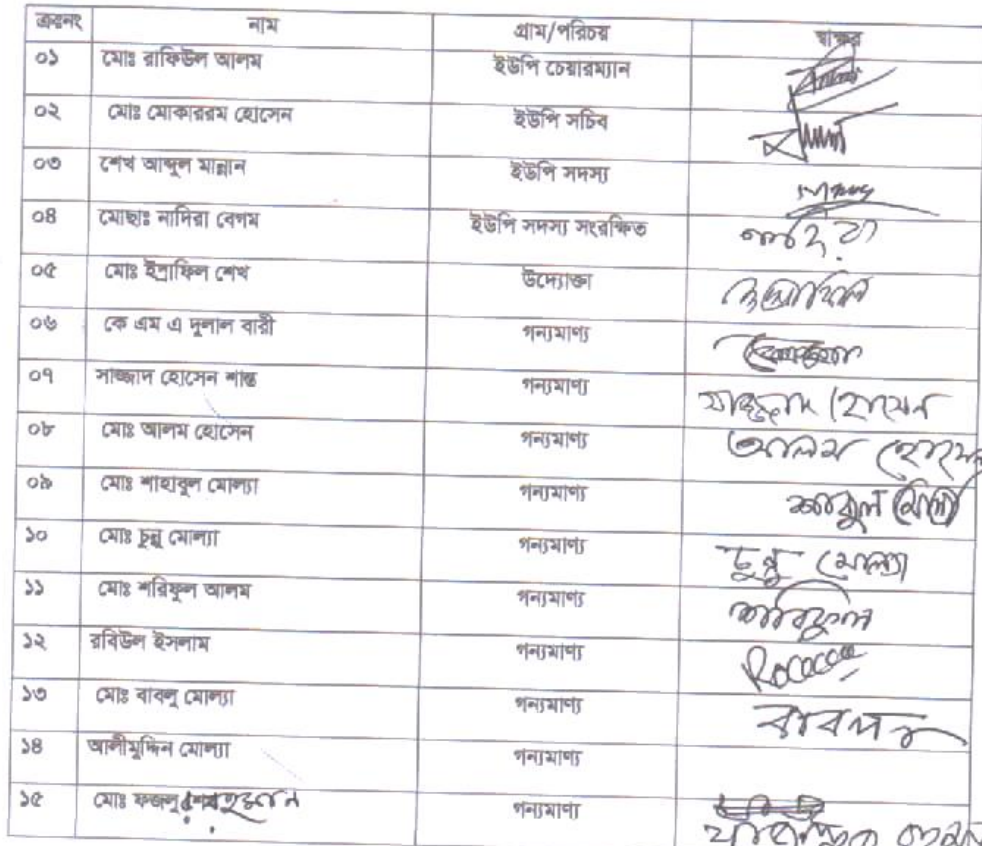 ক্রঃনং নাম গ্রাম/পরিচয় স্বাক্ষর
০১ মোঃ রাফিউল আলম ইউপি চেয়ারম্যান
০২ মোঃ মোকাররম হোসেন ইউপি সচিব
০৩ শেখ আব্দুল মান্নান ইউপি সদস্য
০৪ মোছাঃ নাদিরা বেগম ইউপি সদস্য সংরক্ষিত
০৫ মোঃ ইস্রাফিল শেখ উদ্যোক্তা ইস্রাফিল
০৬ কে এম এ দুলাল বারী গন্যমাণ্য
০৭ সাজ্জাদ হোসেন শান্ত গন্যমাণ্য সাজ্জাদ হোসেন
০৮ মোঃ আলম হোসেন গন্যমাণ্য আলম হোসেন
০৯ মোঃ শাহাবুল মোল্যা গন্যমাণ্য
১০ মোঃ চুন্নু মোল্যা গন্যমাণ্য চুন্নু মোল্যা
১১ মোঃ শরিফুল আলম গন্যমাণ্য শরিফুল
১২ রবিউল ইসলাম গন্যমাণ্য
১৩ মোঃ বাবলু মোল্যা গন্যমাণ্য বাবলু
১৪ আলীমুদ্দিন মোল্যা গন্যমাণ্য
১৫ মোঃ ফজলু গন্যমাণ্য